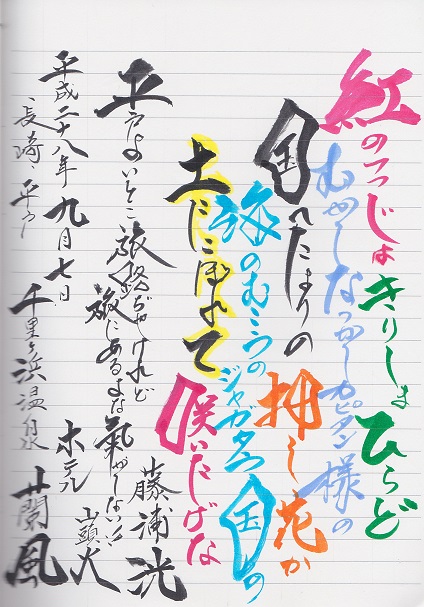 紅のつつじはきりしまひらど
むかしなつかしカピタン様の
国へたよりの押し花か
海のむこうのジャガタラ国の
土にこぼれて咲いたげな
藤浦洸
平戸よいとこ旅路ぢゃけれど
旅にあるよな氣がしない!!
山頭火
平成二十八年九月七日
長崎・平戸 千里ヶ浜温泉 ホテル 蘭風